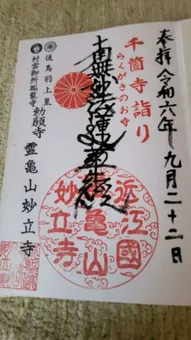 奉拝 令和六年九月二十二日
千箇寺詣り
らくがきのおや
南無妙法蓮華経
近江國
亀山
妙立寺
後鳥羽上皇 勅願寺
村雲御所瑞龍寺
霊亀山 妙立寺